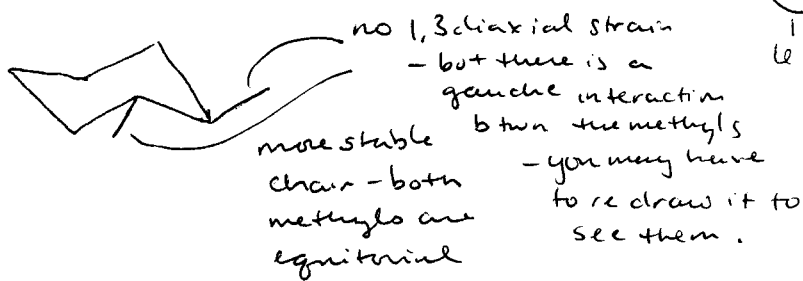 no 1,3 diaxial strain
- but there is a
gauche interaction
btwn the methyls
- you may have
to redraw it to
see them.
more stable
chair - both
methyls are
equitorial